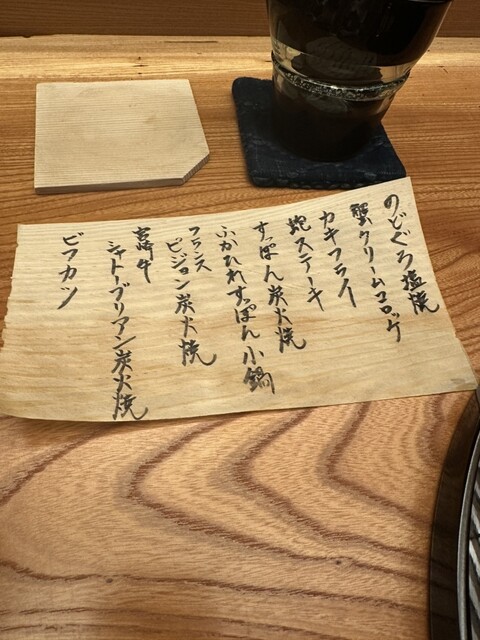 のどぐろ塩焼
蟹クリームコロッケ
カキフライ
鮑ステーキ
すっぽん炭火焼
ふかひれすっぽん小鍋
フランス
ピジョン炭火焼
宮崎牛
シャトーブリアン炭火焼
ビフカツ